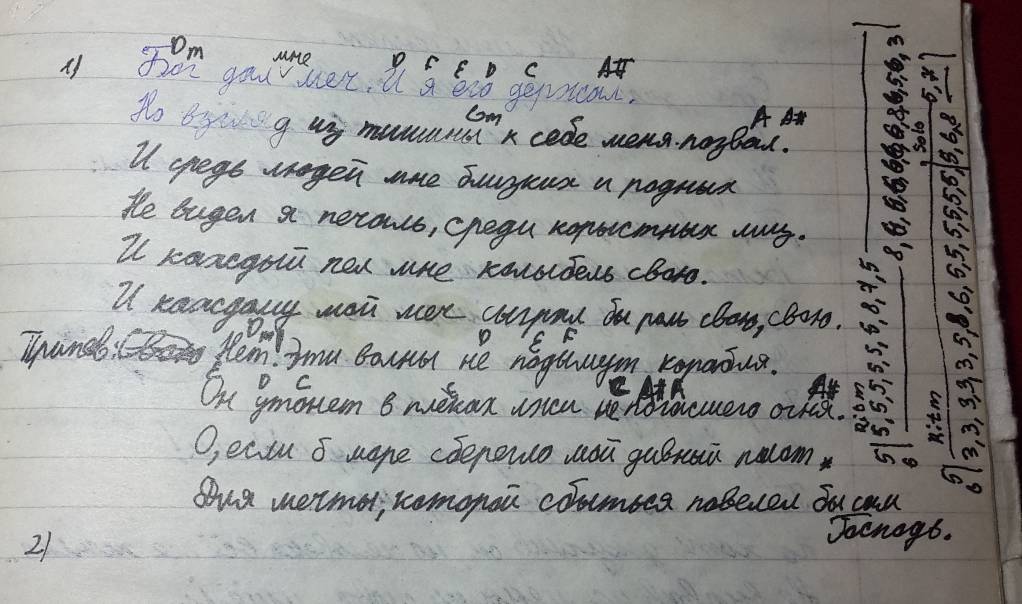 Dm D F E D C A#
1) Бог дал мне меч. И я его держал.
Gm A A#
Но взгляд из тишины к себе меня позвал.
И средь людей мне близких и родных
Не видел я печаль, среди корыстных лиц.
И каждый пел мне колыбель свою.
И каждому мой меч сыграл бы роль свою, свою.
Dm D E F
Припев: Нет! Эти волны не подымут корабля.
E D C C C A# A A#
Он утонет в плёках лжи не погасшего огня.
О, если б море сберегло мой дивный полот
Для мечты, которой сбыться повелел бы сам
Господь.
2)
Ritm
5| 5, 5, 5, 5, 5, 5, 8, 7, 5
6
Ritm Solo
5
6| 3, 3, 3, 3, 3, 5, 8, 6